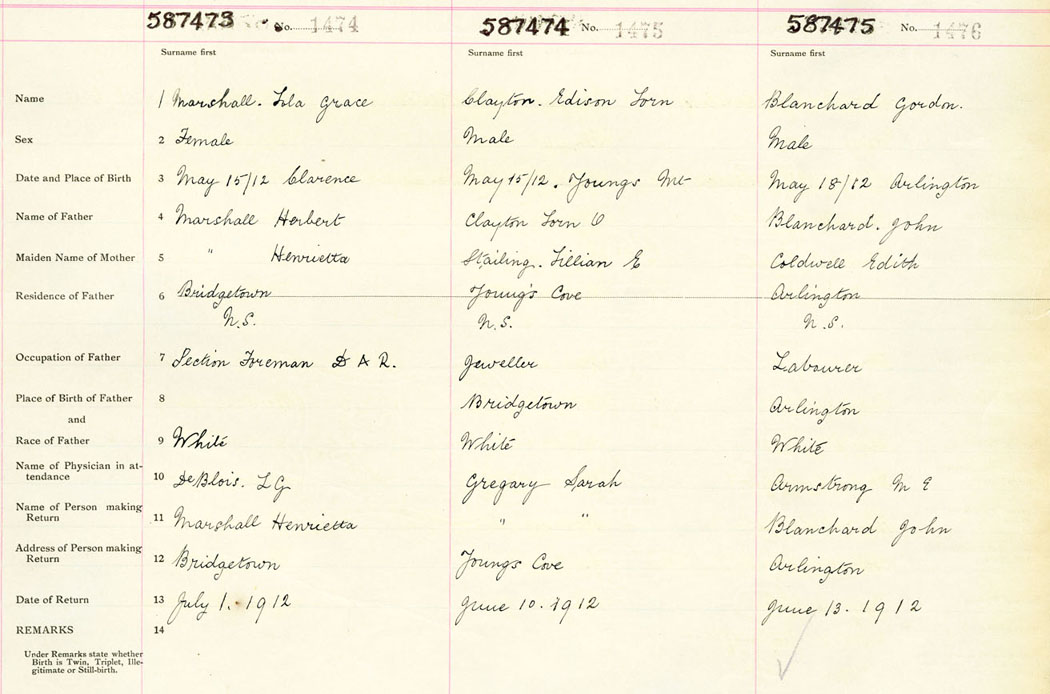 587473 No. 1474 587474 No. 1475 587475 No. 1476
Surname first Surname first Surname first
Name 1 Marshall. Lila Grace Clayton. Edison Lorn Blanchard Gordon.
Sex 2 Female Male Male
Date and Place of Birth 3 May 15/12 Clarence May 15/12. Youngs Mt May 18/12 Arlington
Name of Father 4 Marshall Herbert Clayton Lorn O Blanchard. John
Maiden Name of Mother 5 " Henrietta Stailing. Lillian E Coldwell Edith
Residence of Father 6 Bridgetown Young's Cove Arlington
N.S. N.S. N.S.
Occupation of Father 7 Section Foreman D A R. Jeweller Labourer
Place of Birth of Father 8 Bridgetown Arlington
and
Race of Father 9 White White White
Name of Physician in at-
tendance 10 DeBlois. L G Gregary Sarah Armstrong M E
Name of Person making
Return 11 Marshall Henrietta " " Blanchard John
Address of Person making
Return 12 Bridgetown Youngs Cove Arlington
Date of Return 13 July 1. 1912 June 10. 1912 June 13. 1912
REMARKS 14
Under Remarks state whether
Birth is Twin, Triplet, Ille-
gitimate or Still-birth.